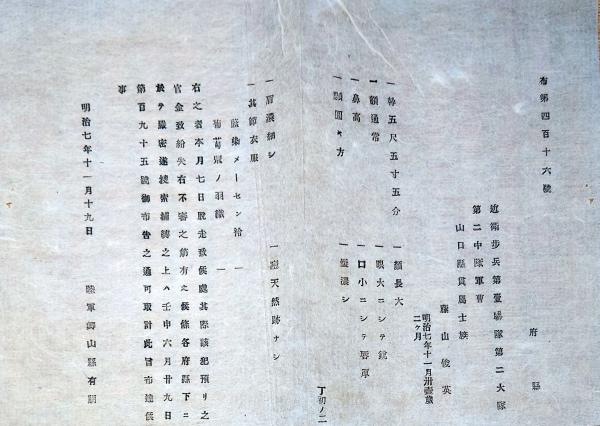 布第四百十六號
府縣
近衛步兵第壹聯隊第二大隊
第二中隊軍曹
山口縣貫屬士族
藤山俊英
明治七年十一月卅壹歲
二ヶ月
一幹五尺五寸五分
一顏長大
一額通常
一眼大ニシテ鋭
一鼻高
一口小ニシテ唇厚
一頤圓キ方
一髮濃シ
丁初ノ二
一眉濃細シ
一痘天然跡ナシ
一其節衣服
藍染メーセン袷 一
葡萄鼠ノ羽織 一
右之者本月七日脫走致候處其際該犯預リ之
官金致紛失右不審之筋有之候條各府縣下ニ
於テ嚴密遂搜索捕縛之上ハ壬申六月廿九日
第百九十五號御布告之通可取計此旨布達候
事
明治七年十一月十九日
陸軍卿山縣有朋